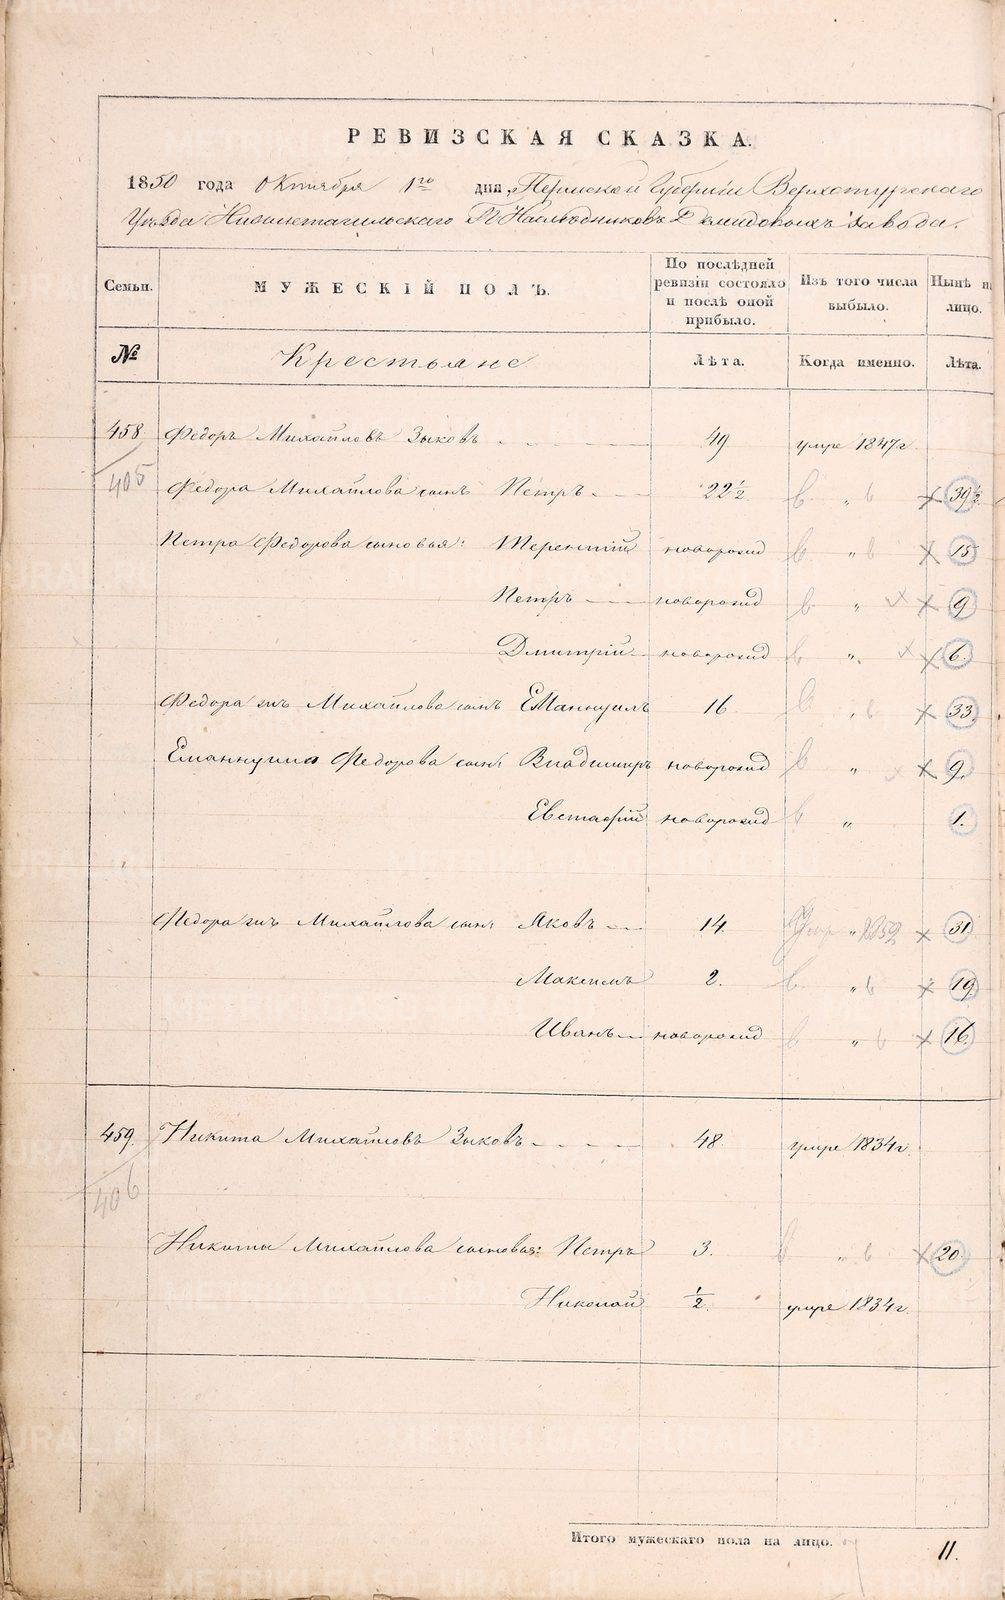 РЕВИЗСКАЯ СКАЗКА.
1850 года Октября 1го дня, Пермской Губернии Верхотурскаго
Уѣзда Нижнетагильскаго Г.г. Наслѣдниковъ Демидовыхъ Завода.
Семьи. МУЖЕСКІЙ ПОЛЪ. По послѣдней ревизіи состояло и послѣ оной прибыло. Изъ того числа выбыло. Нынѣ н лицо.
№ Крестьяне Лѣта. Когда именно. Лѣта.
458 Федоръ Михайловъ Зыковъ 49 умре 1847г.
405 Федора Михайлова сынъ Петръ 22½ " 39½
Петра Федорова сыновья: Терентій новорожд " 15
Петръ новорожд " 9
Дмитрій новорожд " 6.
Федора жъ Михайлова сынъ Еманнуилъ 16 " 33
Еманнуила Федорова сынъ Владимиръ новорожд " 9.
Евстафій новорожд " 1.
Федора жъ Михайлова сынъ Яковъ 14. " 31
Максимъ 2. " 19
Иванъ новорожд " 16.
459. Никита Михайловъ Зыковъ 48. умре 1834г.
406
Никиты Михайлова сыновья: Петръ 3. " 20.
Николай ½. умре 1834г.
Итого мужескаго пола на лицо. 11.
METRIKI.GASO-URAL.RU